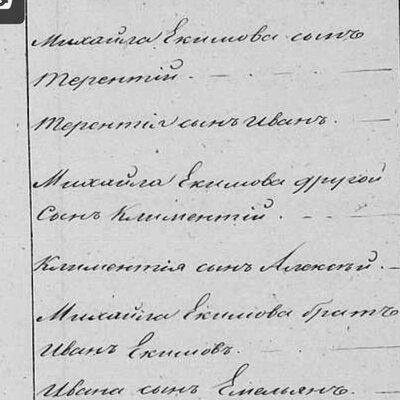 Михайла Екимова сынъ
Терентій.
Терентія сынъ Иванъ.
Михайла Екимова другой
Сынъ Климентій.
Климентія сынъ Алексѣй.
Михайла Екимова братъ
Иванъ Екимовъ.
Ивана сынъ Емельянъ.